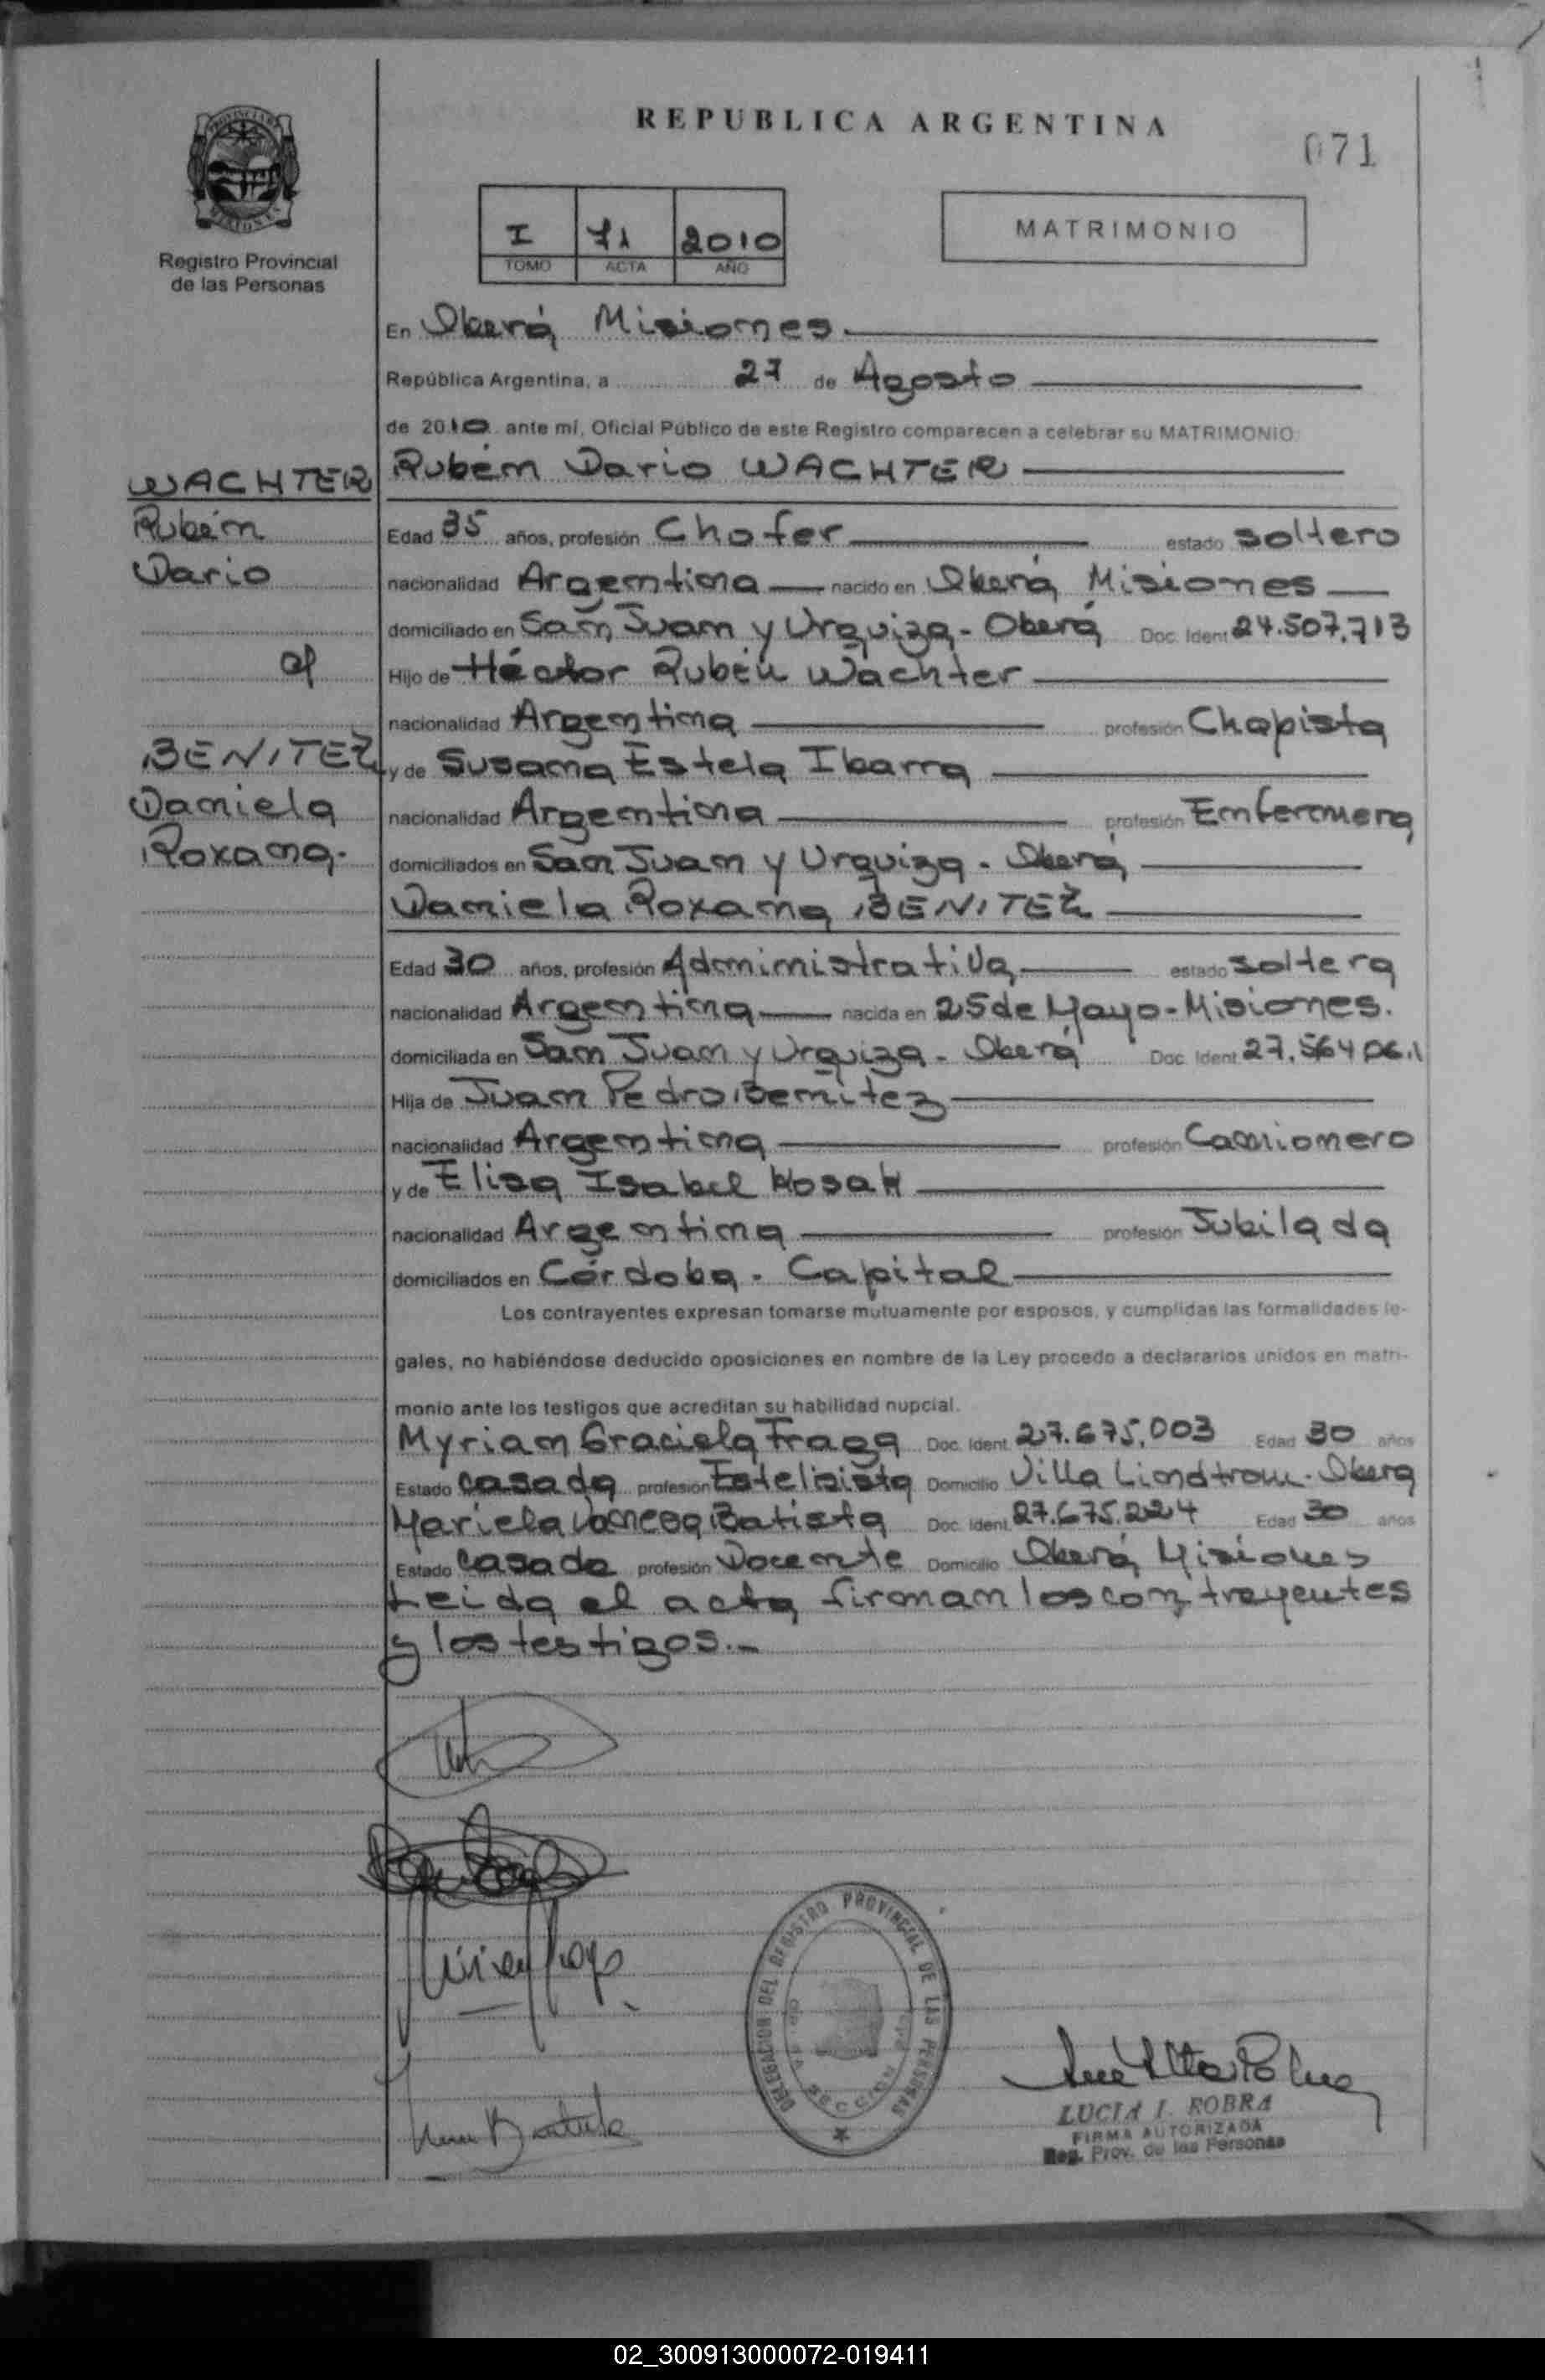 REPUBLICA ARGENTINA
071
PROVINCIA DE MISIONES
Registro Provincial
de las Personas
I 71 2010
TOMO ACTA AÑO
MATRIMONIO
En Oberá Misiones.
República Argentina, a 27 de Agosto
de 2010 ante mí, Oficial Público de este Registro comparecen a celebrar su MATRIMONIO:
WACHTER
Rubén
Dario
c/
BENITEZ
Daniela
Roxana.
Rubén Dario WACHTER
Edad 35 años, profesión Chofer estado soltero
nacionalidad Argentina nacido en Oberá Misiones
domiciliado en San Juan y Urquiza - Oberá Doc. Ident 24.507.713
Hijo de Héctor Rubén Wachter
nacionalidad Argentina profesión Chapista
y de Susana Estela Ibarra
nacionalidad Argentina profesión Enfermera
domiciliados en San Juan y Urquiza - Oberá
Daniela Roxana BENITEZ
Edad 30 años, profesión Administrativa estado soltera
nacionalidad Argentina nacida en 25 de Mayo - Misiones.
domiciliada en San Juan y Urquiza - Oberá Doc. Ident 27.564.061
Hija de Juan Pedro Benitez
nacionalidad Argentina profesión Camionero
y de Elisa Isabel Kosak
nacionalidad Argentina profesión Jubilada
domiciliados en Córdoba - Capital
Los contrayentes expresan tomarse mutuamente por esposos, y cumplidas las formalidades le-
gales, no habiéndose deducido oposiciones en nombre de la Ley procedo a declararlos unidos en matri-
monio ante los testigos que acreditan su habilidad nupcial.
Myriam Graciela Fraga Doc. Ident. 27.675.003 Edad 30 años
Estado casada profesión Estelisista Domicilio Villa Lindtrom - Oberá
Mariela Vanesa Batista Doc. Ident. 27.675.224 Edad 30 años
Estado casada profesión Docente Domicilio Oberá Misiones
Leida el acta firman los contrayentes
y los testigos.-
DELEGACION DEL REGISTRO PROVINCIAL DE LAS PERSONAS
LUCIA I. ROBRA
FIRMA AUTORIZADA
Reg. Prov. de las Personas
02_300913000072-019411